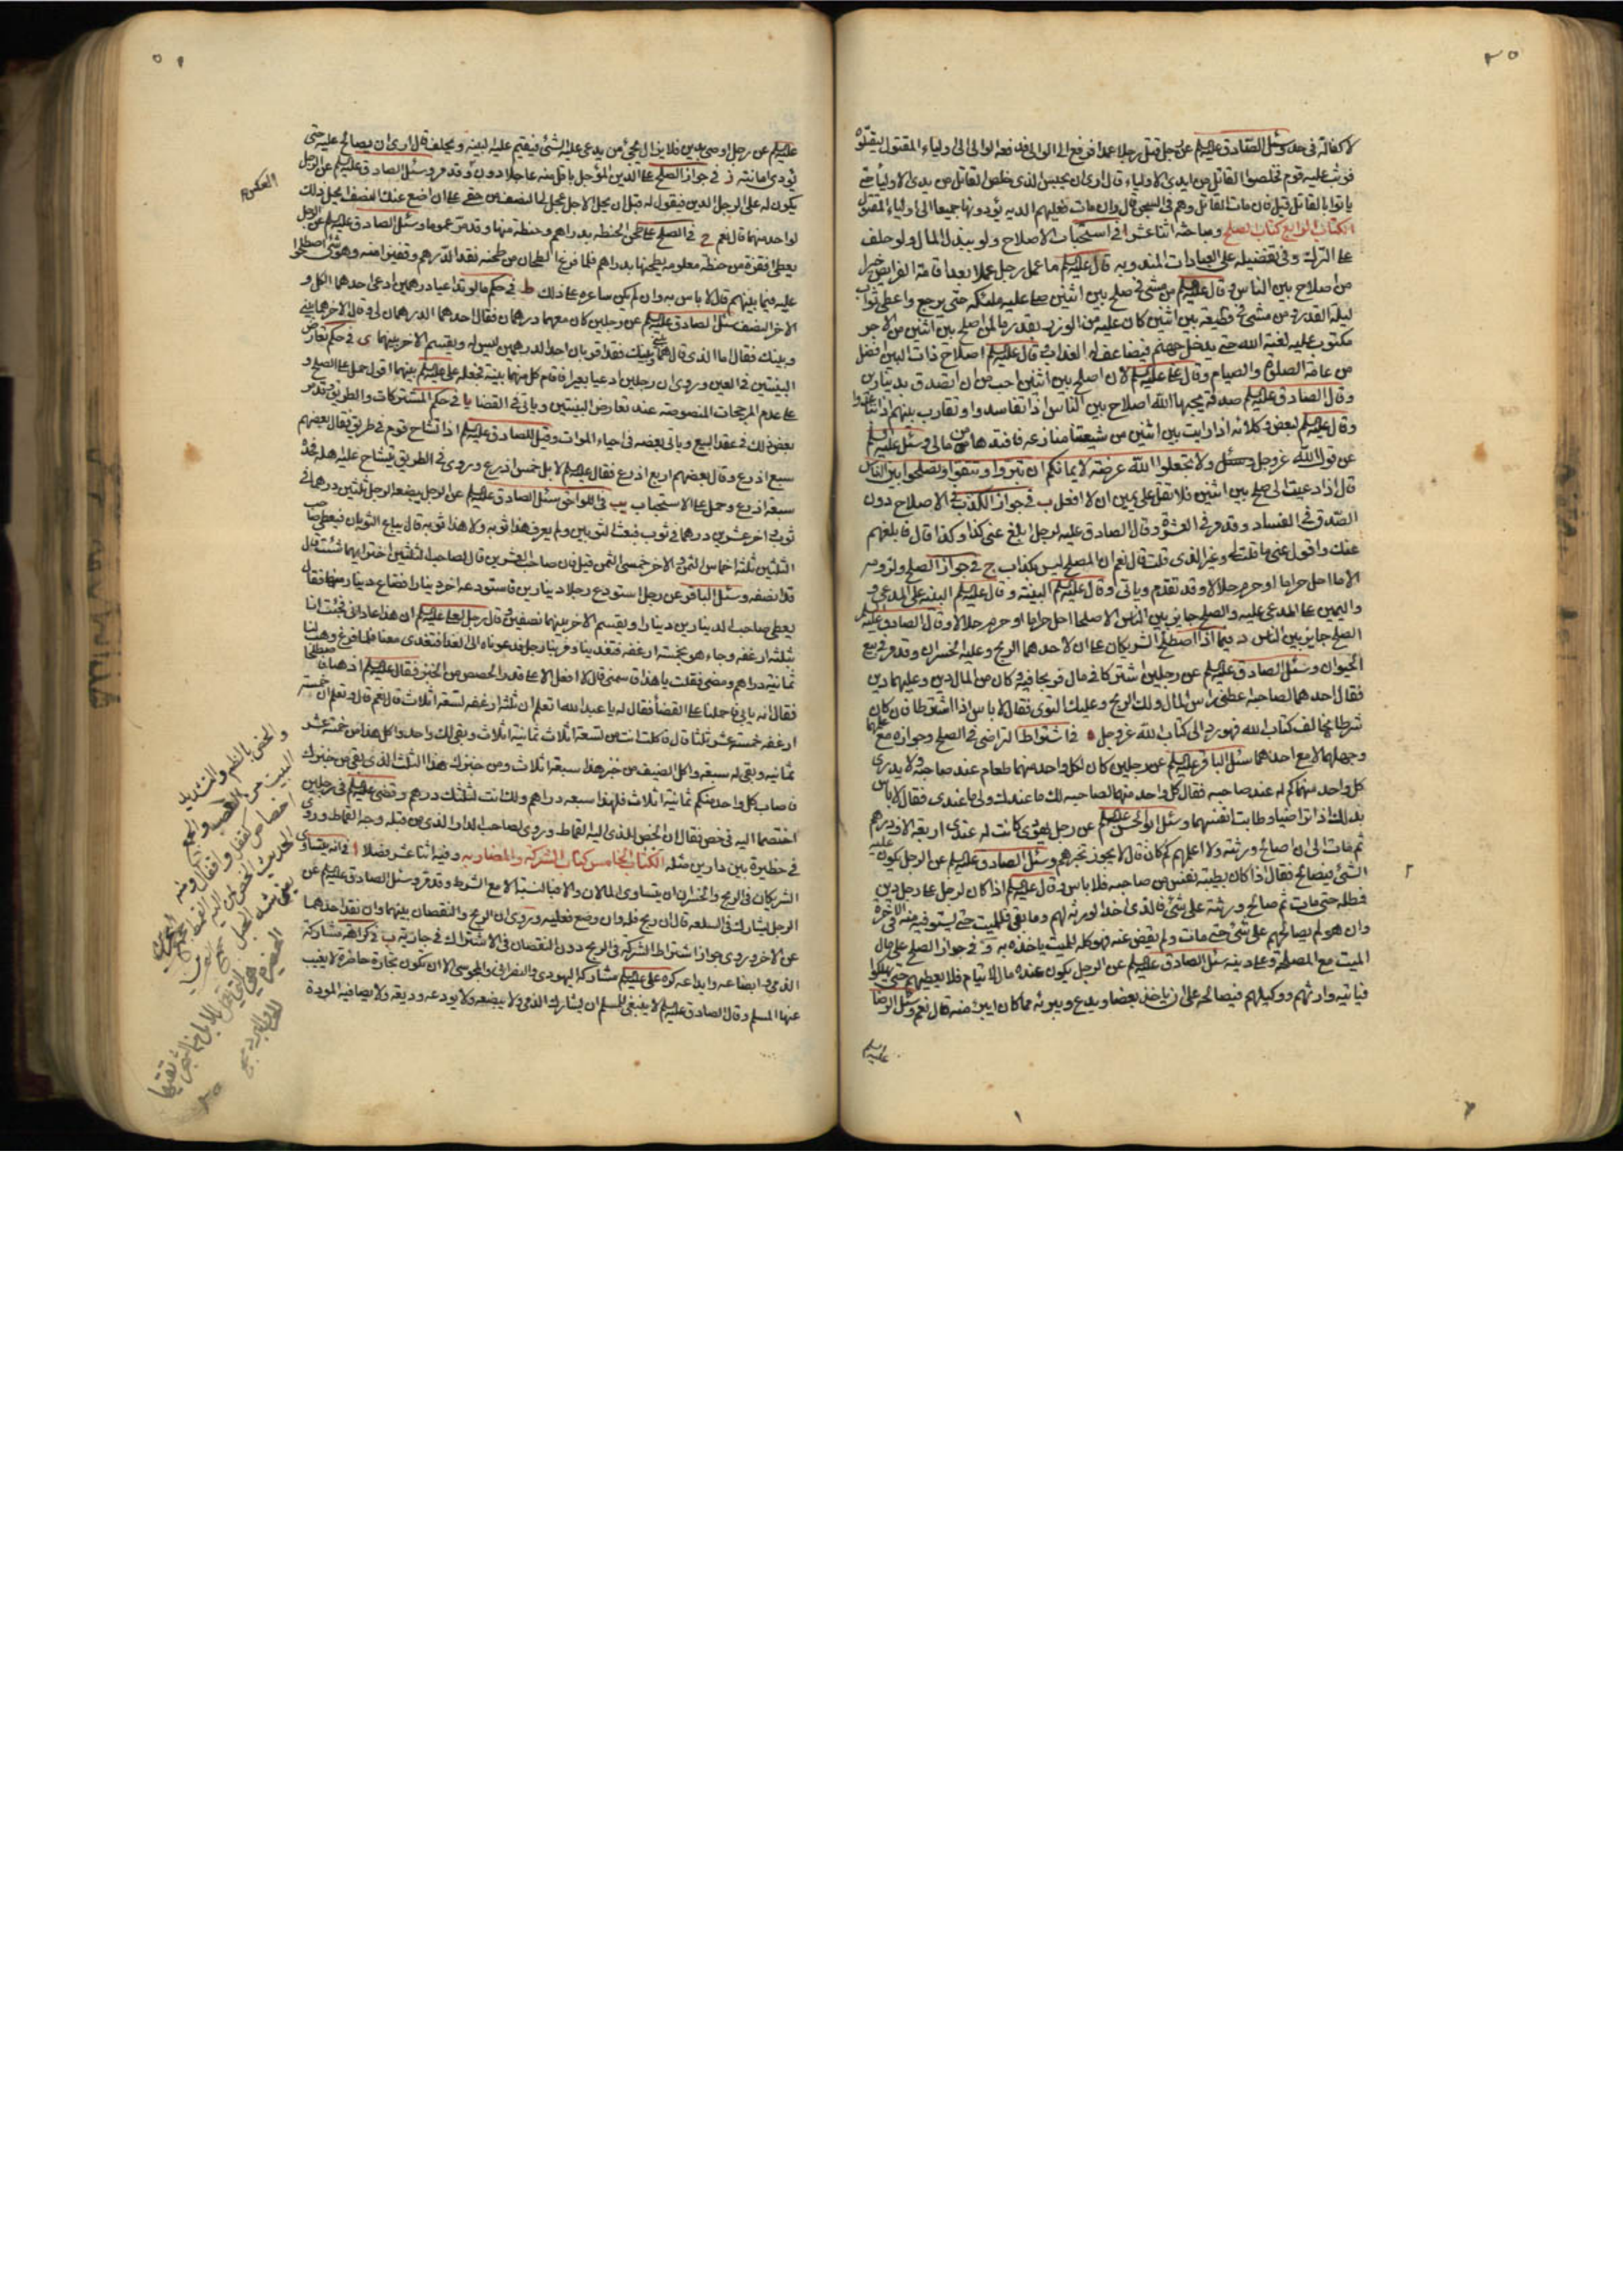 لا كفالة فى حد وسئل الصادق عليه السلم عن رجل قتل رجلا عمدا فرفع الى الوالى فدفعه الوالى الى اولياء المقتول ليقتلوه
فوثب عليه قوم فخلصوا القاتل من ايدى الاولياء قال ارى ان يحبس الذى خلص القاتل من يدى الاولياء حتى
ياتوا بالقاتل قيل فان مات القاتل وهم فى السجن قال وان مات فعليهم الدية يؤدونها جميعا الى اولياء المقتول
الكتاب الرابع كتاب الصلح ومباحثه اثنا عشر ا فى استحباب الاصلاح ولو ببذل المال ولو حلف
على الترك وفى تفضيله على العبادات المندوبة قال عليه السلم ما عمل رجل عملا بعد اقامة الفرايض خيرا
من اصلاح بين الناس وقال عليه السلم من مشى فى صلح بين اثنين صلى عليه ملئكة حتى يرجع واعطى ثواب
ليلة القدر ومن مشى فى قطيعة بين اثنين كان عليه من الوزر بقدر ما لمن اصلح بين اثنين من الاجر
مكتوب عليه لعنة الله حتى يدخل جهنم فيضاعف له العذاب وقال عليه السلم اصلاح ذات البين افضل
من عامة الصلوة والصيام وقال على عليه السلم لان اصلح بين اثنين احب من ان اتصدق بدينارين
وقال الصادق عليه السلم صدقة يحبها الله اصلاح بين الناس اذا تفاسدوا وتقارب بينهم اذا تباعدوا
وقال عليه السلم لبعض وكلائه اذا رايت بين اثنين من شيعتنا منازعة فافتدها من مالى وسئل عليه السلم
عن قول الله عز وجل ولا تجعلوا الله عرضة لايمانكم ان تبروا وتتقوا وتصلحوا بين الناس
قال اذا دعيت الى صلح بين اثنين فلا تقل على يمين ان لا افعل ب فى جواز الكذب فى الاصلاح دون
الصدق فى الفساد وقد مر فى العشرة وقال الصادق عليه لرجل ابلغ عنى كذا وكذا قال فابلغهم
عنك واقول عنى ما قلت له وغير الذى قلت قال نعم ان المصلح ليس بكذاب ج فى جواز الصلح ولزومه
الا ما احل حراما او حرم حلالا وقد تقدم وياتى وقال عليه السلم البينة وقال عليه السلم البينة على المدعى
واليمين على المدعى عليه والصلح جايز بين الناس الا صلحا احل حراما او حرم حلالا وقال الصادق عليه السلم
الصلح جايز بين الناس د فيما اذا اصطلح الشريكان على ان لاحدهما الربح وعليه الخسران وقد مر فى بيع
الحيوان وسئل الصادق عليه السلم عن رجلين اشتركا فى مال فربحا فيه وكان من المال دين وعليهما دين
فقال احدهما لصاحبه اعطنى راس المال ولك الربح وعليك التوى فقال لا باس اذا اشترطا فان كان
شرطا يخالف كتاب الله فهو رد الى كتاب الله عز وجل ه فى اشتراط التراضى فى الصلح وجوازه مع علمهما
وجهلهما لا مع احدهما سئل الباقر عليه السلم عن رجلين كان لكل واحد منهما طعام عند صاحبه ولا يدرى
كل واحد منهما كم له عند صاحبه فقال كل واحد منهما لصاحبه لك ما عندك ولى ما عندى فقال لا باس
بذلك اذا تراضيا وطابت انفسهما وسئل ابو الحسن عليه السلم عن رجل يهودى كانت له عندى اربعة الاف درهم
ثم مات الى ان اصالح ورثته ولا اعلمهم كم كان قال لا يجوز تخبرهم وسئل الصادق عليه السلم عن الرجل يكون عليه
الشىء فيصالح فقال اذا كان بطيبة نفس من صاحبه فلا باس وقال عليه السلم اذا كان لرجل على رجل دين
فمطله حتى مات ثم صالح ورثته على شىء فالذى اخذ الورثة لهم وما بقى فللميت حتى يستوفيه منه فى الاخرة
وان هو لم يصالحهم على شىء حتى مات ولم يقض عنه فهو كله للميت ياخذه به و فى جواز الصلح على مال
الميت مع المصلحة وعلى دينه سئل الصادق عليه السلم عن الرجل يكون عنده مال لايتام فلا يعطيهم حتى يهلكوا
فياتيه وارثهم ووكيلهم فيصالحه على ان ياخذ بعضا ويدع ويبرئه مما كان ايبرء منه قال نعم وسئل الرضا
عليه السلم
عليه السلم عن رجل اوصى بدين فلا يزال يجئ من يدعى عليه الشئ فيقيم عليه البينة ويحلف قال ارى ان يصالح عليه حتى
يؤدى امانته ز فى جواز الصلح على الدين المؤجل باقل منه عاجلا دون وقد مر وسئل الصادق عليه السلم عن الرجل
العكس
يكون له على الرجل الدين فيقول له قبل ان يحل الاجل عجل لى النصف من حقى على ان اضع عنك النصف ايحل ذلك
لواحد منهما قال نعم ح فى الصلح على طحن الحنطة بدراهم وحنطة منها وقد مر عموما وسئل الصادق عليه السلم عن الرجل
يعطى اقفزة من حنطة معلومة يطحنها بدراهم فلما فرغ الطحان من طحنه نقد الدراهم وقفيزا منه وهو شئ اصطلحوا
عليه فيما بينهم قال لا باس به وان لم يكن ساعره على ذلك ط فى حكم ما لو تداعيا درهمين ادعى احدهما الكل و
الاخر النصف سئل الصادق عليه السلم عن رجلين كان معهما درهمان فقال احدهما الدرهمان لى وقال الاخر هما بينى
وبينك فقال اما الذى قال هما بينى وبينك فقد اقر بان احد الدرهمين ليس له ويقسم الاخر بينهما ى فى حكم تعارض
البينتين فى العين وروى ان رجلين ادعيا بعيرا فاقام كل منهما بينة فجعله على عليه السلم بينهما اقول حمل على الصلح و
على عدم المرجحات المنصوصة عند تعارض البينتين وياتى فى القضا يا فى حكم المشتركات والطريق وقد مر
بعض ذلك فى عقد البيع وياتى بعضه فى احياء الموات وقيل للصادق عليه السلم اذا تشاح قوم فى طريق فقال بعضهم
سبع اذرع وقال بعضهم اربع اذرع فقال عليه السلم لا بل خمس اذرع وروى فى الطريق يتشاح عليه اهله فحده
سبعة اذرع وحمل على الاستحباب يب فى اللواحق سئل الصادق عليه السلم عن الرجل يبضعه الرجل ثلثين درهما فى
ثوب واخر عشرين درهما فى ثوب فبعث الثوبين ولم يعرف هذا ثوبه ولا هذا ثوبه قال يباع الثوبان فيعطى صاحب
الثلثين ثلثة اخماس الثمن والاخر خمسى الثمن قيل فان صاحب العشرين قال لصاحب الثلثين اختر ايهما شئت قال
قد انصفه وسئل الباقر عن رجل استودع رجلا دينارين فاستودعه اخر دينارا فضاع دينار منها فقال
يعطى صاحب الدينارين دينارا ويقسم الاخر بينهما نصفين وقال رجل لعلى عليه السلم ان هذا غادانى فجئت انا
بثلثة ارغفة وجاء هو بخمسة ارغفة فتغدينا ومر بنا رجل فدعوناه الى الغداء فتغدى معنا فلما فرغ وهب لنا
ثمانية دراهم ومضى فقلت يا هذا قاسمنى قال لا افعل الا على قدر الحصص من الخبز فقال عليه السلم اذهبا فاصطلحا
فقال انه يابى فاحملنا على القضاء فقال له يا عبد الله اما تعلم ان ثلثة ارغفة تسعة اثلاث قال نعم قال وتعلم ان خمسة
ارغفة خمسة عشر ثلثا قال فاكلت انت من تسعة اثلاث ثمانية اثلاث وبقى لك واحد واكل هذا من خمسة عشر
ثمانية وبقى له سبعة واكل الضيف من خبز هذا سبعة اثلاث ومن خبزك هذا الثلث الذى بقى من خبزك
فاصاب كل واحد منكم ثمانية اثلاث فلهذا سبعة دراهم ولك انت لثلثك درهم وقضى عليه السلم فى رجلين
اختصما اليه فى خص فقال ان الخص للذى اليه القماط وروى لصاحب الدار الذى من قبله وجه القماط وروى
فى حظيرة بين دارين مثله الكتاب الخامس كتاب الشركة والمضاربة وفيه اثنا عشر فصلا ا فى انه يتساوى
الشريكان فى الربح والخسران ان يتساوى المالان والا فبالنسبة الا مع الشرط وقد مر وسئل الصادق عليه السلم عن
الرجل يشارك فى السلعة قال ان ربح فله وان وضع فعليه وروى ان الربح والنقصان بينهما وان نقد احدهما
عن الاخر وروى جواز اشتراط الشركة فى الربح دون النقصان فى الاشتراك فى جارية ب فى كراهة مشاركة
الذمى وابضاعه وايداعه كره على عليه السلم مشاركة اليهودى والنصرانى والمجوسى الا ان تكون تجارة حاضرة لا يغيب
عنها المسلم وقال الصادق عليه السلم لا ينبغى للمسلم ان يشارك الذمى ولا يبضعه ولا يودعه وديعة ولا يصافيه المودة
والخص بالضم والتشديد
البيت من القصب والجمع
اخصاص كقفل واقفال ومنه
الحديث الخص لمن اليه القماط